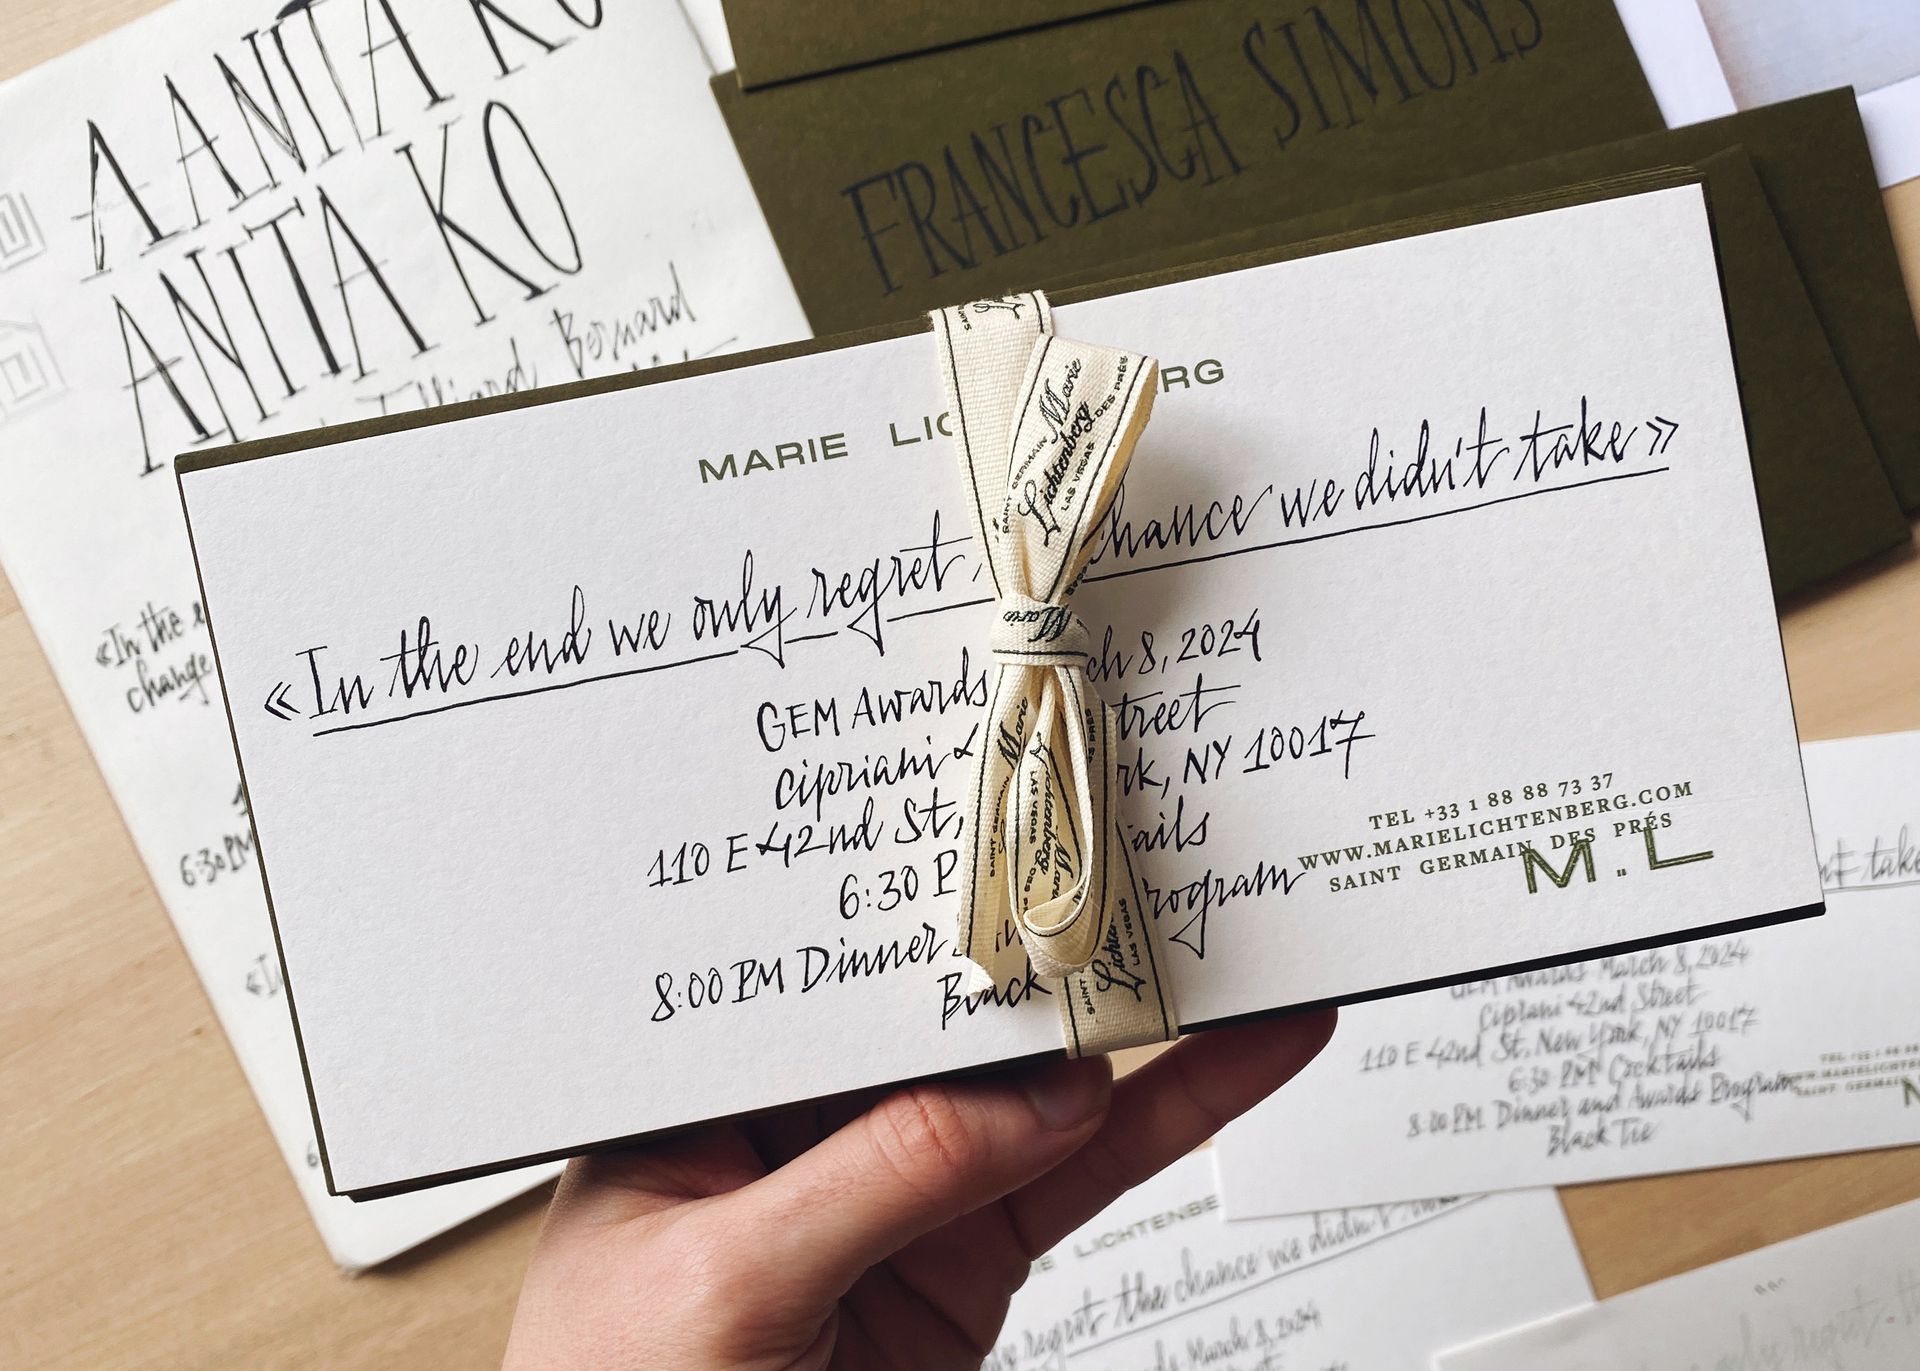 A ANITA KO
ANITA KO
Bernard
FRANCESCA SIMONS
MARIE LIC RG
«In the end we only regret, chance we didn't take»
GEM Awards ch 8, 2024
Cipriani 4 treet
110 E 42nd St, rk, NY 10017
6:30 P ails
8:00 PM Dinner rogram
Black
TEL +33 1 88 88 73 37
WWW.MARIELICHTENBERG.COM
SAINT GERMAIN DES PRÉS
M.L
SAINT GERMAIN DES PRÉS
Marie
Lichtenberg
LAS VEGAS
Marie
SAINT GERMAIN
Marie
Lichtenberg
LAS VEGAS
LAS VEGAS
«In the e
change
6:30 PM
«I
t take
GEM Awards March 8, 2024
Cipriani 42nd Street
110 E 42nd St, New York, NY 10017
6:30 PM Cocktails
8:00 PM Dinner and Awards Program
Black Tie
IE LICHTENBE
regret the chance we didn't
March 8, 2024